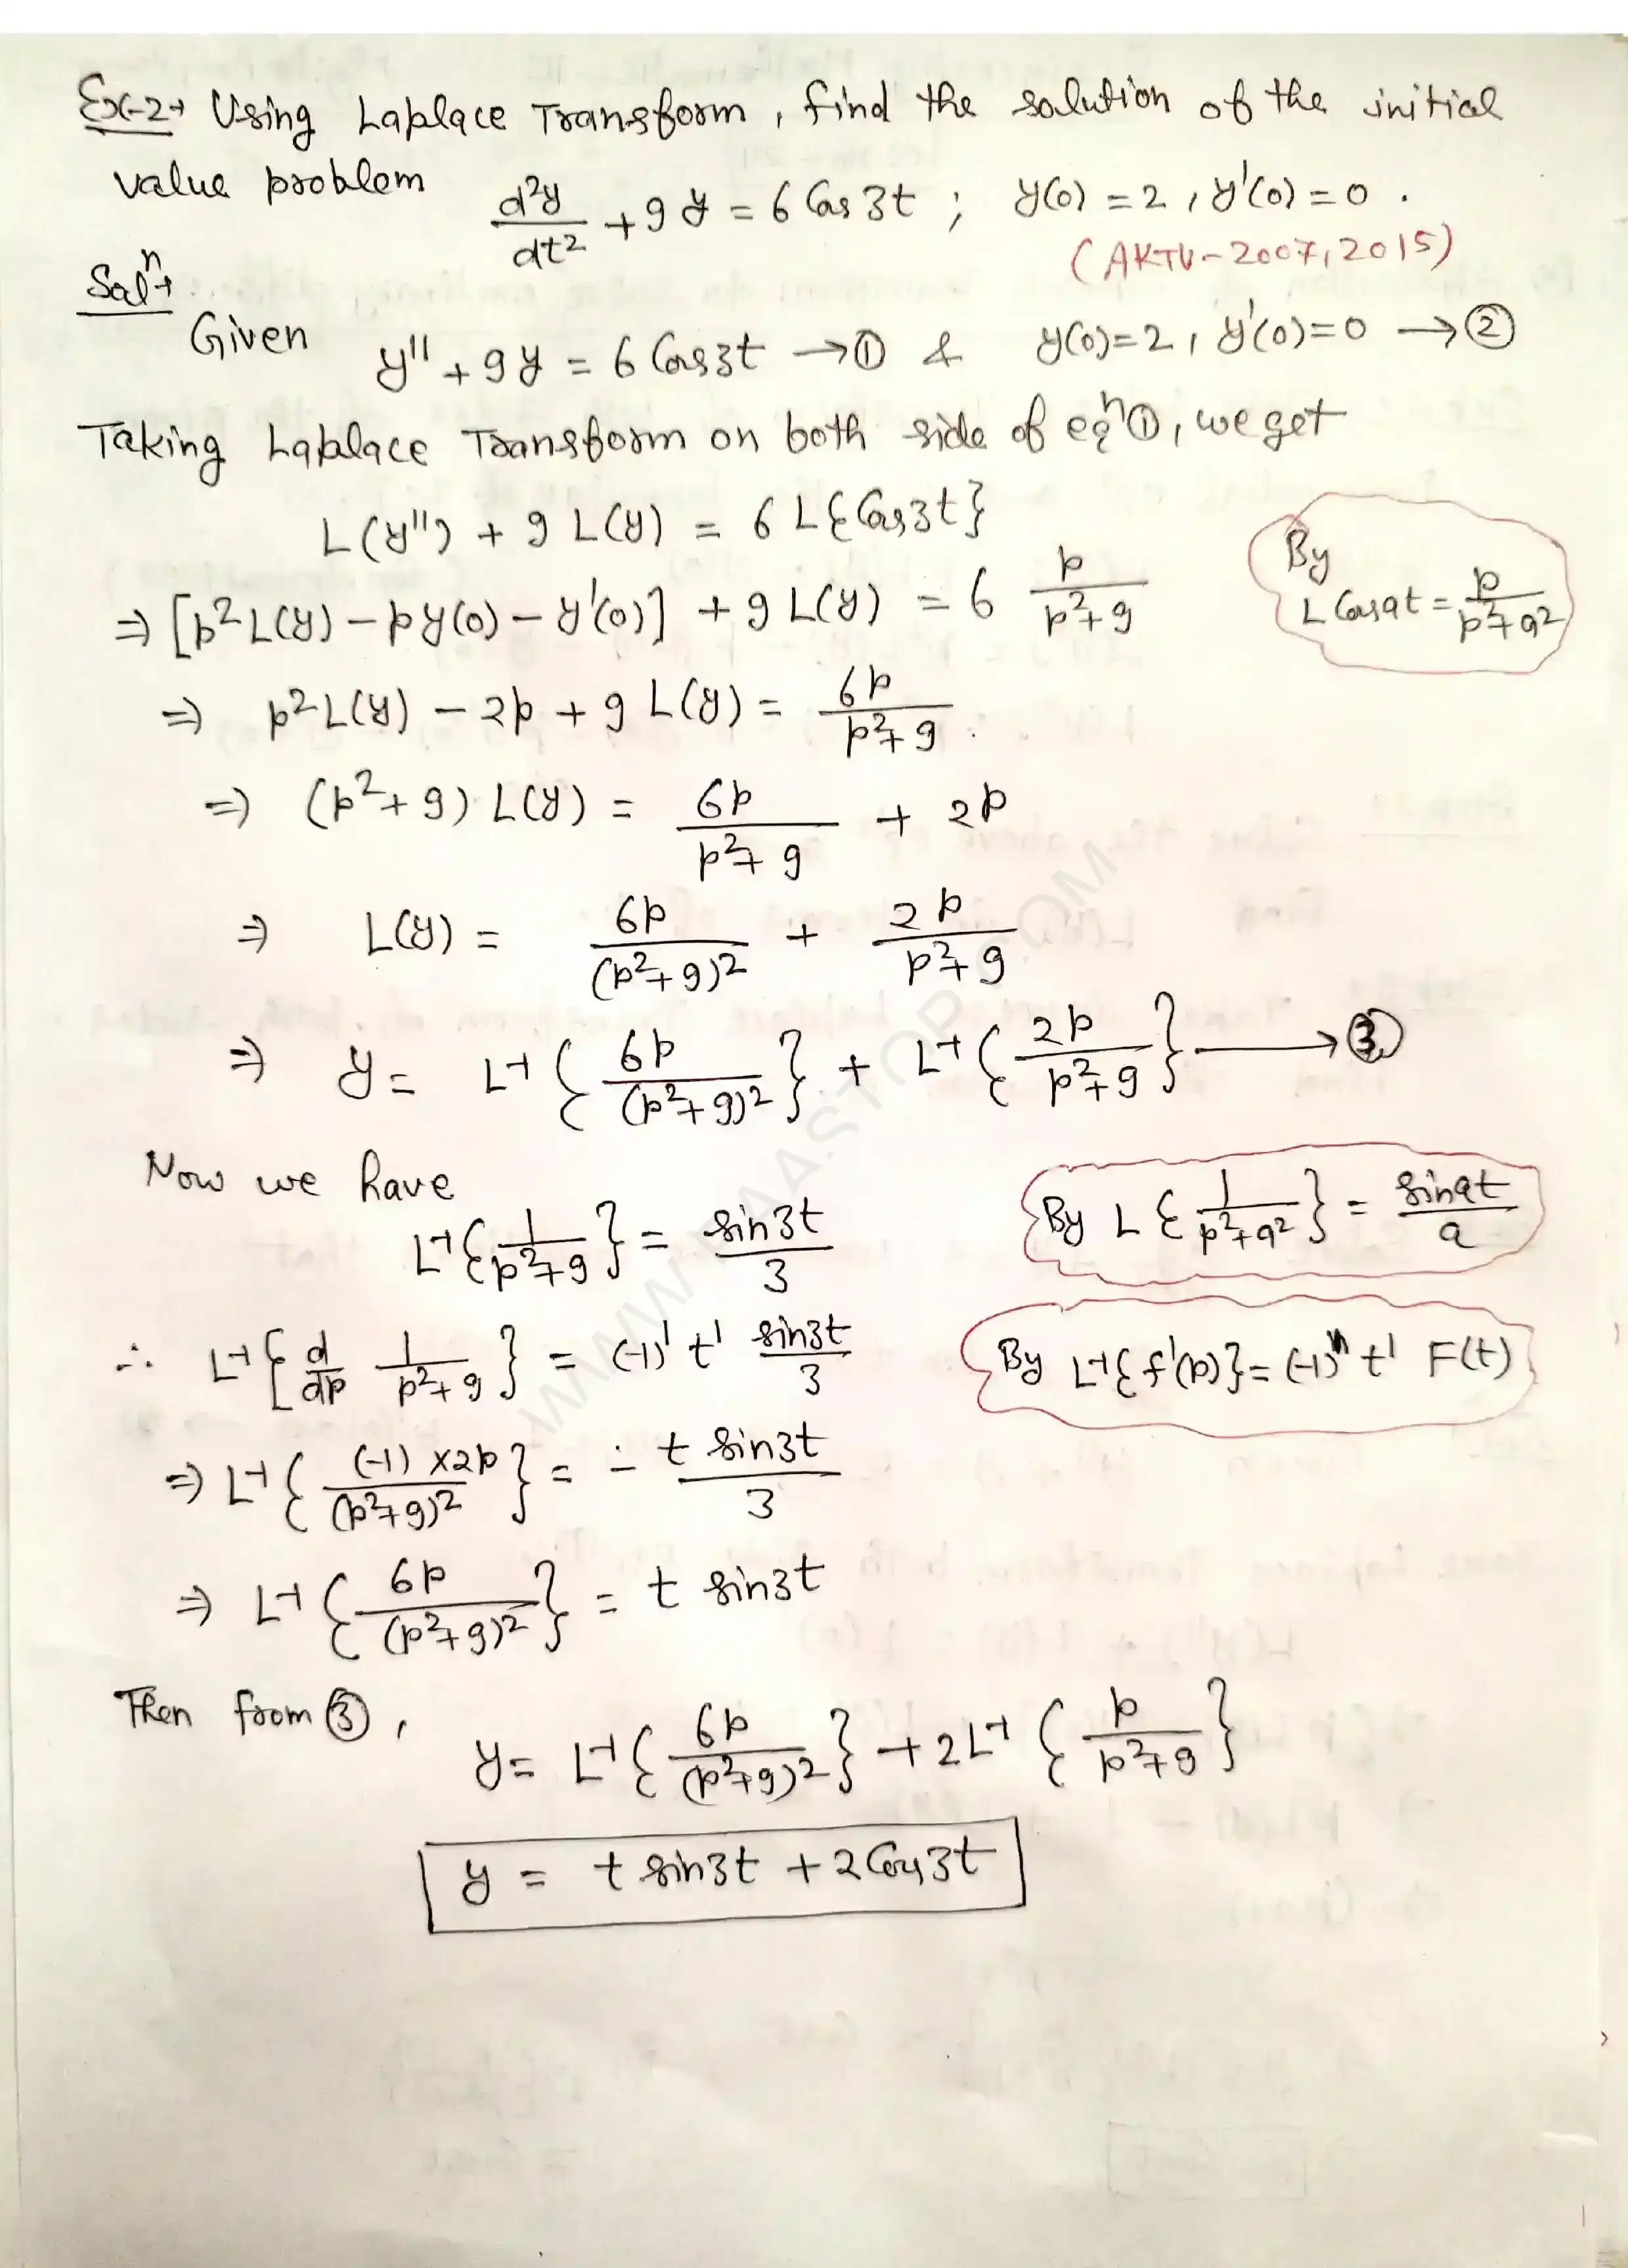 Ex-2→ Using Laplace Transform, find the solution of the initial
value problem d²y/dt² + 9y = 6 Cos 3t ; y(0) = 2, y'(0) = 0 .
(AKTU-2007,2015)
Solⁿ→
Given y'' + 9y = 6 Cos3t → ① & y(0)=2, y'(0)=0 → ②
Taking Laplace Transform on both side of eqⁿ①, we get
L(y'') + 9 L(y) = 6 L{Cos3t}
⇒ [p²L(y) − p y(0) − y'(0)] + 9 L(y) = 6 p/(p²+9)
By
L Cosat = p/(p²+a²)
⇒ p²L(y) − 2p + 9 L(y) = 6p/(p²+9)
⇒ (p²+9) L(y) = 6p/(p²+9) + 2p
⇒ L(y) = 6p/(p²+9)² + 2p/(p²+9)
⇒ y = L⁻¹{6p/(p²+9)²} + L⁻¹{2p/(p²+9)} → ③
Now we have
L⁻¹{1/(p²+9)} = sin3t/3
By L{1/(p²+a²)} = sinat/a
∴ L⁻¹{d/dp 1/(p²+9)} = (-1)¹ t¹ sin3t/3
By L⁻¹{f'(p)} = (-1)ⁿ t¹ F(t)
⇒ L⁻¹{(-1)×2p/(p²+9)²} = − t sin3t/3
⇒ L⁻¹{6p/(p²+9)²} = t sin3t
Then from ③, y = L⁻¹{6p/(p²+9)²} + 2L⁻¹{p/(p²+9)}
y = t sin3t + 2Cos3t